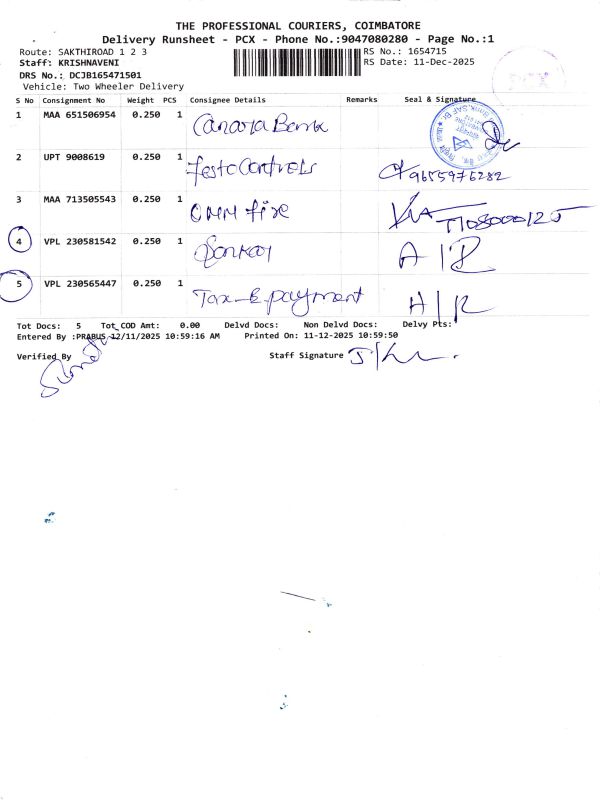 THE PROFESSIONAL COURIERS, COIMBATORE
Delivery Runsheet - PCX - Phone No.:9047080280 - Page No.:1
Route: SAKTHIROAD 1 2 3 RS No.: 1654715
Staff: KRISHNAVENI RS Date: 11-Dec-2025
DRS No.: DCJB165471501
Vehicle: Two Wheeler Delivery
PCX
S No Consignment No Weight PCS Consignee Details Remarks Seal & Signature
1 MAA 651506954 0.250 1 Canara Bank
2 UPT 9008619 0.250 1 Festo Controls 9655976282
3 MAA 713505543 0.250 1 CNM fire
4 VPL 230581542 0.250 1
5 VPL 230565447 0.250 1 Tax-E-payment
Tot Docs: 5 Tot COD Amt: 0.00 Delvd Docs: Non Delvd Docs: Delvy Pts:
Entered By :PRABUS 12/11/2025 10:59:16 AM Printed On: 11-12-2025 10:59:50
Verified By Staff Signature